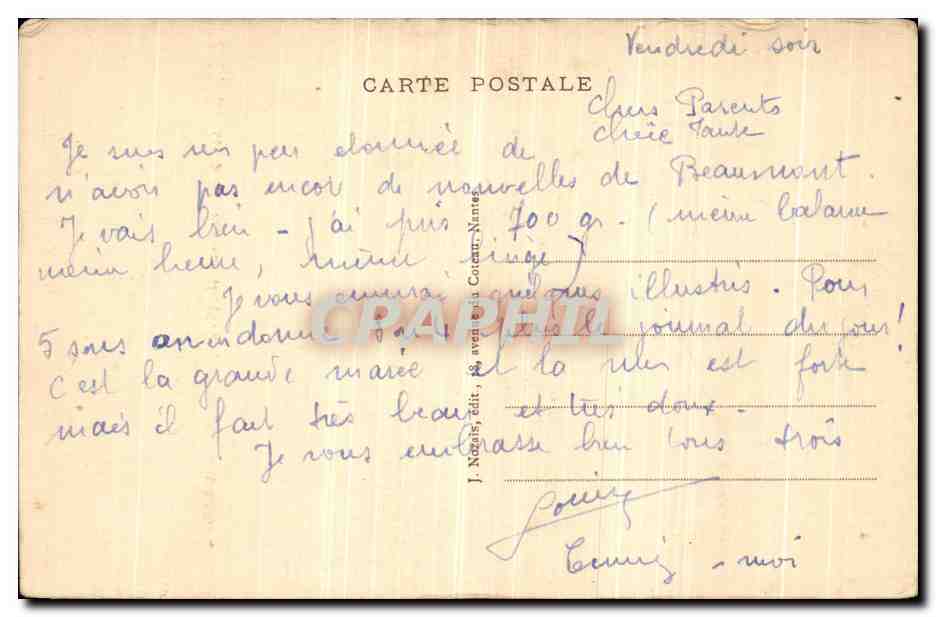 Vendredi soir
CARTE POSTALE
chers Parents
chère Tante
Je suis un peu étonnée de
n'avoir pas encor de nouvelles de Beaumont.
Je vais bien - j'ai pris 700 gr. (même balance
même heure, même linge)
Je vous envoie quelques illustrés. Pour
5 sous on en donne 3 plus le journal du jour!
C'est la grande marée et la mer est forte
mais il fait très beau et très doux.
Je vous embrasse bien tous trois
- moi
J. Nozais, édit., 18, avenue du Coteau, Nantes
CPARPHIL